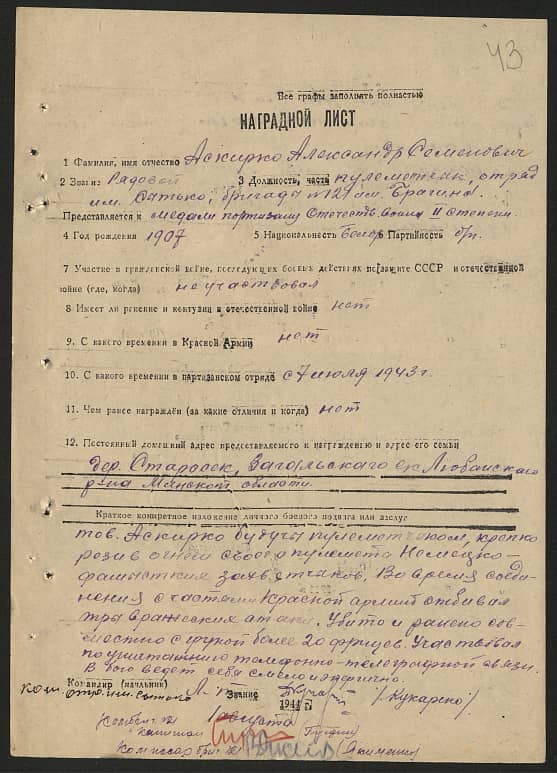 43
Все графы заполнять полностью
НАГРАДНОЙ ЛИСТ
1 Фамилия, имя отчество Аскирко Александр Семенович
2 Звание Рядовой 3 Должность, часть пулеметчик отряд
им. Сатько, бригады №121 им. Брагина.
Представляется к медали партизану Отечеств. войны II степени.
4 Год рождения 1907 5 Национальность Белор. Партийность б/п.
7 Участие в гражданской войне, последующих боевых действях по защите СССР и отечественной
войне (где, когда) не участвовал
8 Имеет ли ранение и контузии в отечественной войне нет
9. С какого времени в Красной Армии нет
10. С какого времени в партизанском отряде с 7 июля 1943 г.
11. Чем ранее награждён (за какие отличия и когда) нет
12. Постоянный домашний адрес представляемого к награждению и адрес его семьи
дер. Старосек, Загальского с/с Любанского
р-на Минской области.
Краткое конкретное изложение личного боевого подвига или заслуг
тов. Аскирко будучи пулеметчиком, крепко
разив огнем своего пулемета Немецко-
фашистких захватчиков, Во время соеди-
нения с частями Красной армии отбивал
три вражеския атаки. Убито и ранено сов-
местно с групой более 20 фрицев. Участвовал
по уништажнию телефонно-телеграфной связи.
В бою ведет себя смело
Командир (начальник)
Звание /Кукарско/
1 августа 1944 г.
Комбриг
капитан
Комиссар бриг.